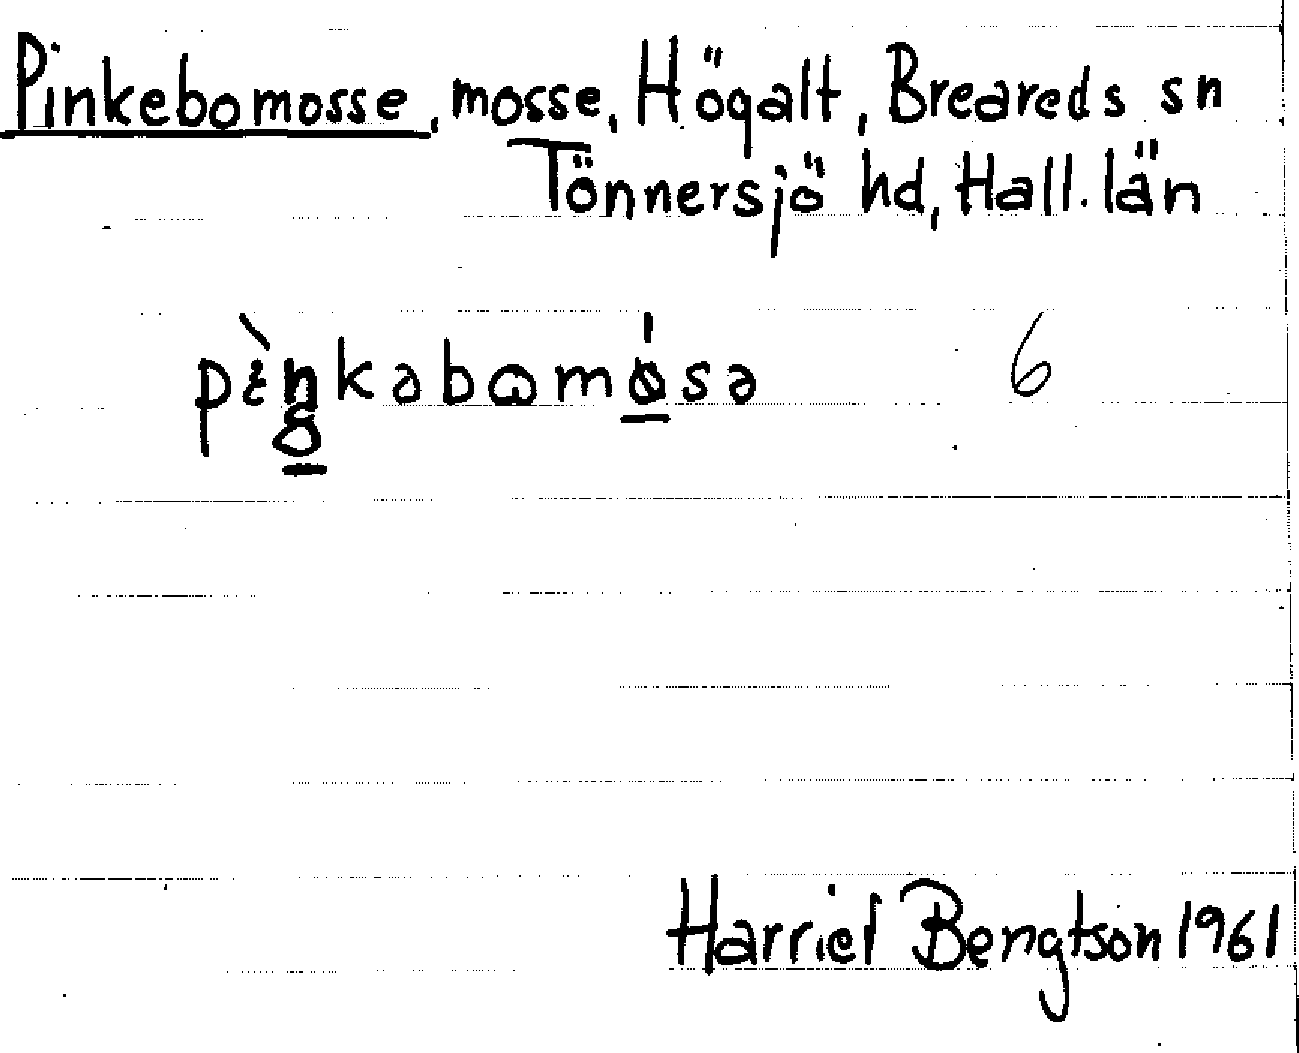 Pinkebomosse, mosse, Högalt, Breareds sn
Tönnersjö hd, Hall. län
pìŋkəbomósə 6
Harriet Bengtson 1961